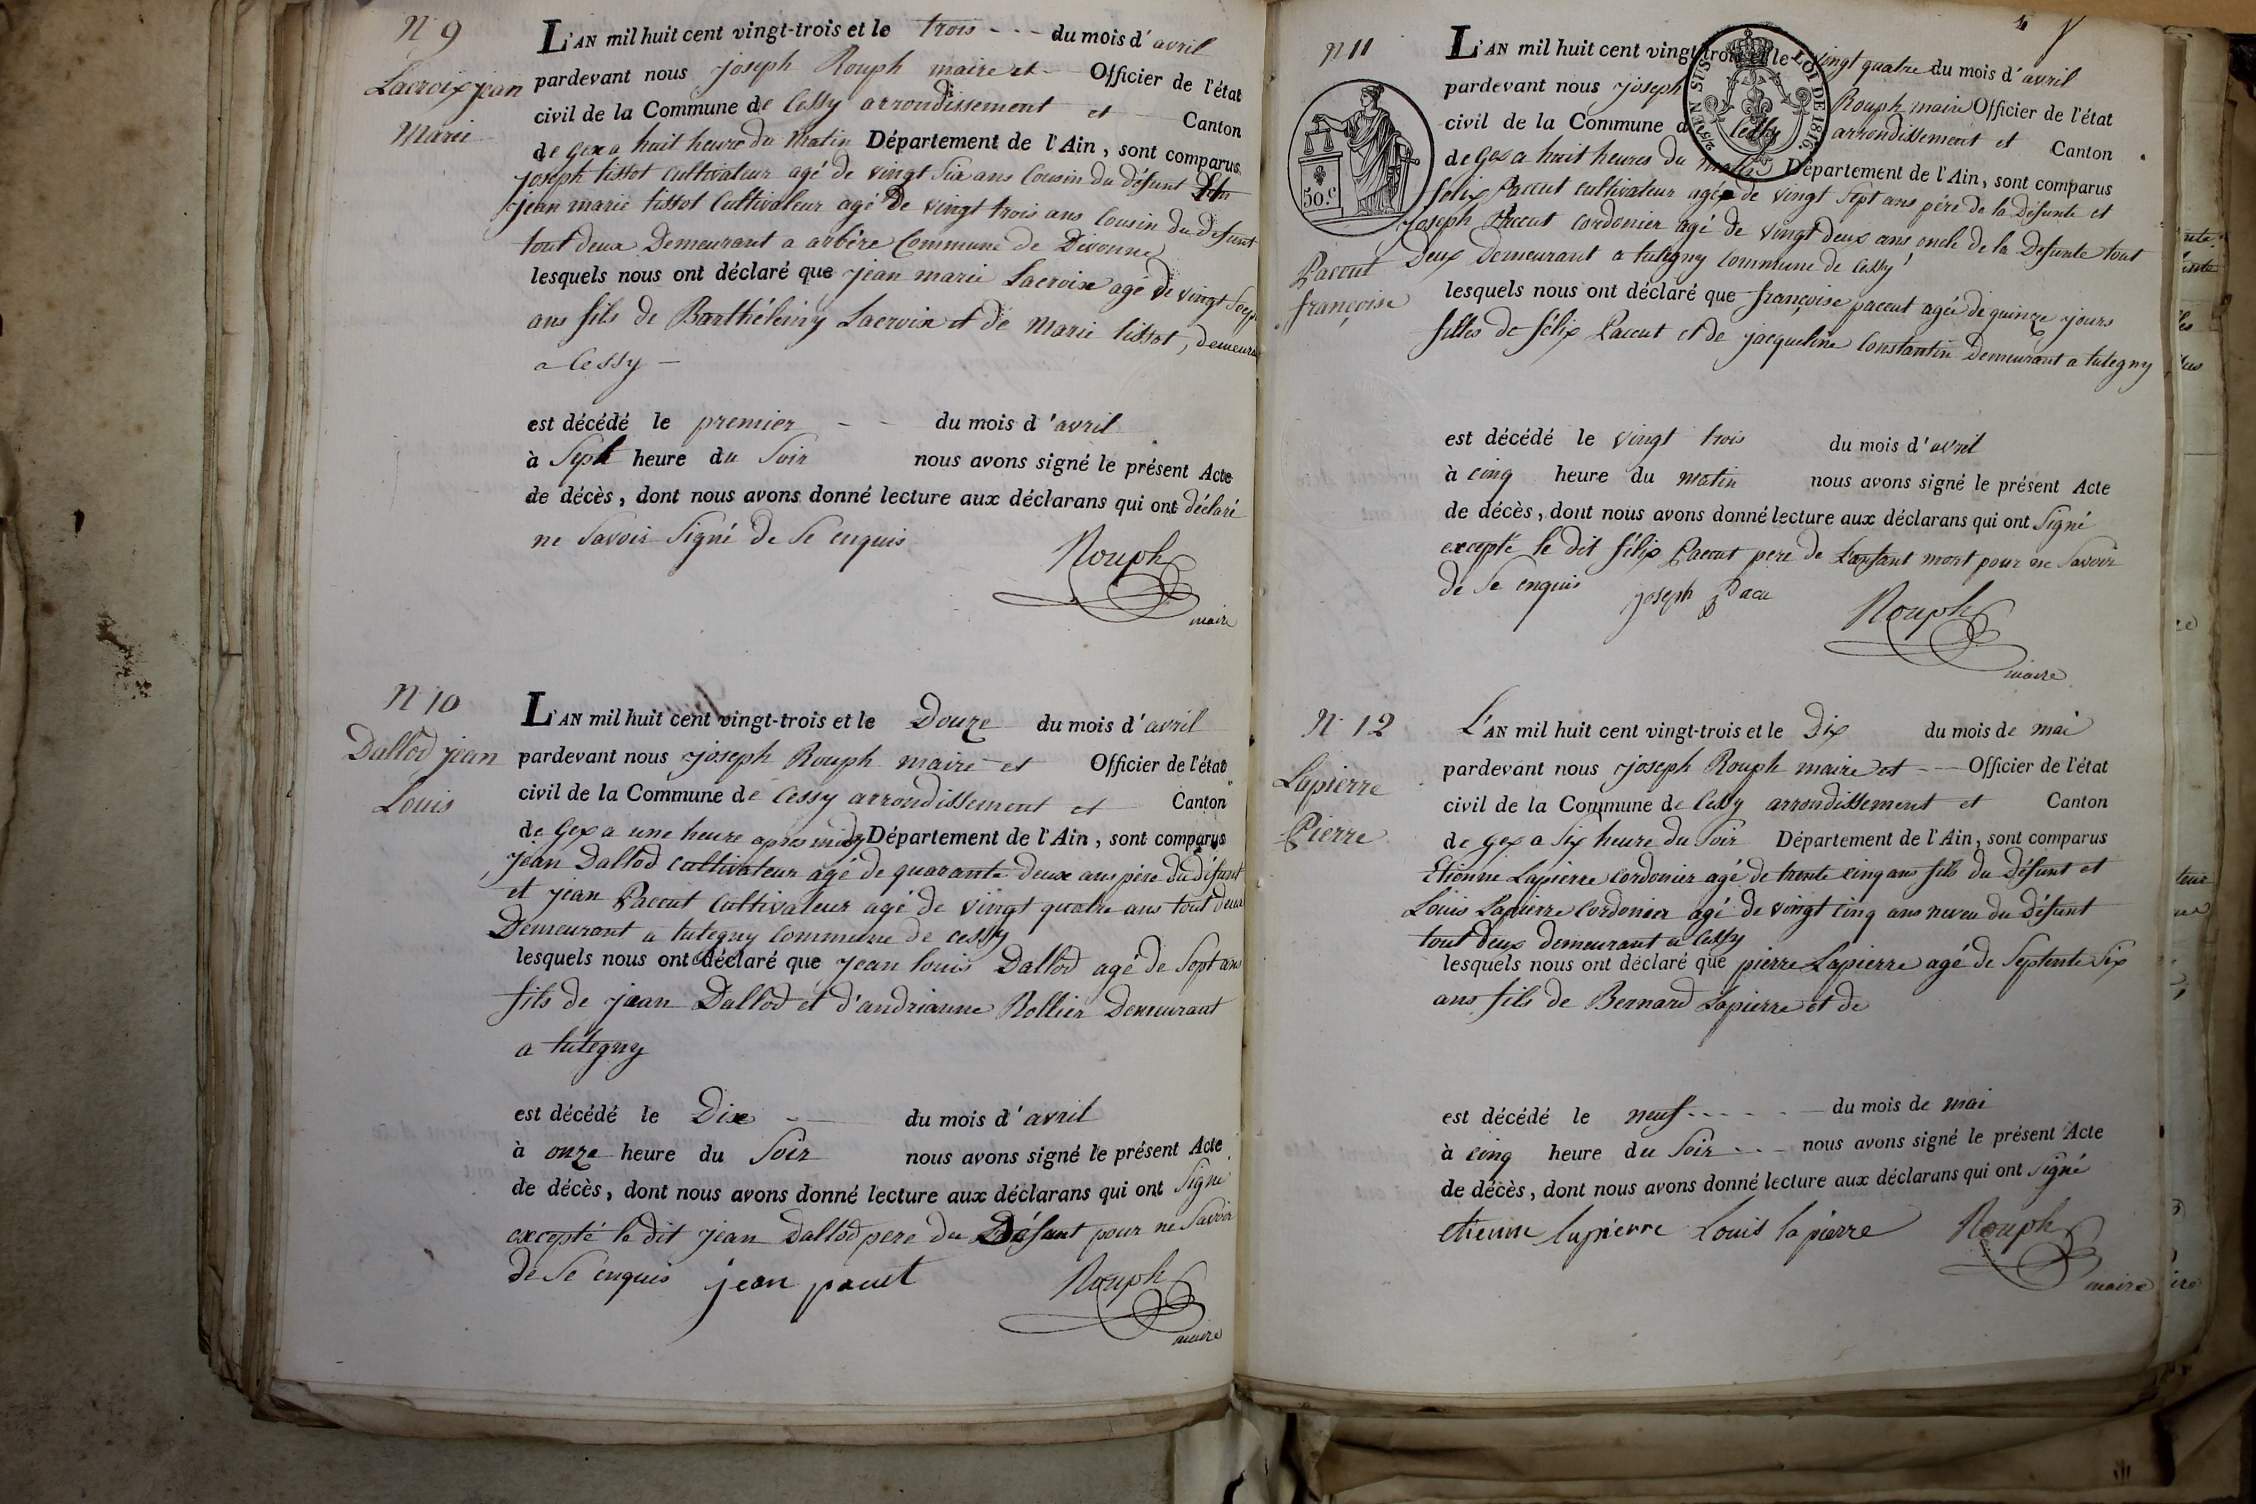 N 9
Lacroix jean
Marie
L'AN mil huit cent vingt-trois et le trois - - - du mois d'avril
pardevant nous joseph Rouph maire et Officier de l'état
civil de la Commune de Cessy arrondissement et Canton
de Gex a huit heure du matin Département de l'Ain, sont comparus
joseph tissot cultivateur agé de vingt Six ans Cousin du défunt
jean marie tissot Cultivateur agé de vingt trois ans Cousin du defunt
tout deux Demeurant a arbère Commune de Divonne
lesquels nous ont déclaré que jean marie Lacroix agé de vingt Sept
ans fils de Barthélemy Lacroix et de Marie tissot, demeurant
a Cessy -
est décédé le premier - - du mois d'avril
à Sept heure du Soir nous avons signé le présent Acte
de décès, dont nous avons donné lecture aux déclarans qui ont déclaré
ne Savoir Signé de Se enquis
Rouph
maire
N 10
Dallod jean
Louis
L'AN mil huit cent vingt-trois et le Douze du mois d'avril
pardevant nous joseph Rouph maire et Officier de l'état
civil de la Commune de Cessy arrondissement et Canton
de Gex a une heure apres midy Département de l'Ain, sont comparus
jean Dallod cultivateur agé de quarante deux ans père du défunt
et jean Paccut Cultivateur agé de vingt quatre ans tout deux
Demeurant a tutegny commune de cessy
lesquels nous ont déclaré que jean louis Dallod agé de Sept ans
fils de jean Dallod et d'andrianne Rollier Demeurant
a tutegny
est décédé le Dix - du mois d'avril
à onze heure du Soir nous avons signé le présent Acte
de décès, dont nous avons donné lecture aux déclarans qui ont Signé
excepté le dit jean Dallod pere du Défunt pour ne Savoir
de Se enquis jean pacut
Rouph
maire
N 11
50.C
Pacout
françoise
L'AN mil huit cent vingt-trois et le vingt quatre du mois d'avril
pardevant nous joseph Rouph maire Officier de l'état
civil de la Commune de Cessy arrondissement et Canton
TIMBRE EN SUS LOI DE 1816.
de Gex a huit heures du matin Département de l'Ain, sont comparus
félix Paccut cultivateur agé de vingt Sept ans père de la Défunte et
joseph Paccut cordonier agé de vingt deux ans oncle de la Defunte tout
Deux Demeurant a tutegny commune de Cessy
lesquels nous ont déclaré que françoise paccut agée de quinze jours
filles de félix Paccut et de jacqueline Constantin Demeurant a tutegny
est décédé le vingt trois du mois d'avril
à cinq heure du matin nous avons signé le présent Acte
de décès, dont nous avons donné lecture aux déclarans qui ont Signé
excepté le dit félix Paccut pere de L'enfant mort pour ne Savoir
de Se enquis joseph Pacu
Rouph
maire
N 12
Lapierre
Pierre
L'AN mil huit cent vingt-trois et le Dix du mois de mai
pardevant nous joseph Rouph maire et - Officier de l'état
civil de la Commune de Cessy arrondissement et Canton
de gex a Six heure du Soir Département de l'Ain, sont comparus
Etienne Lapierre cordonier agé de trente cinq ans fils du Défunt et
Louis Lapierre Cordonier agé de vingt Cinq ans neveu du Défunt
tout deux demeurant a Cessy
lesquels nous ont déclaré que pierre Lapierre agé de Septente Six
ans fils de Bernard Lapierre et de
est décédé le neuf - - - - - du mois de mai
à cinq heure du Soir - - - nous avons signé le présent Acte
de décès, dont nous avons donné lecture aux déclarans qui ont Signé
etienne lapierre Louis lapierre Rouph
maire